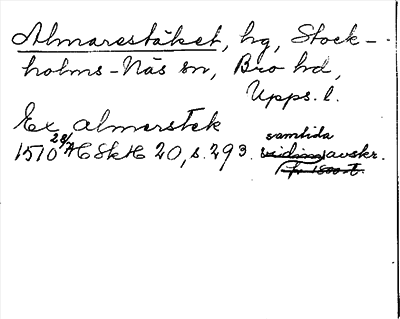 Almarestäket, hg, Stock-
holms-Näs sn, Bro hd,
Upps. l.
Ex almerstek
1510 28/7 HSkH 20, s. 293. samtida avskr.